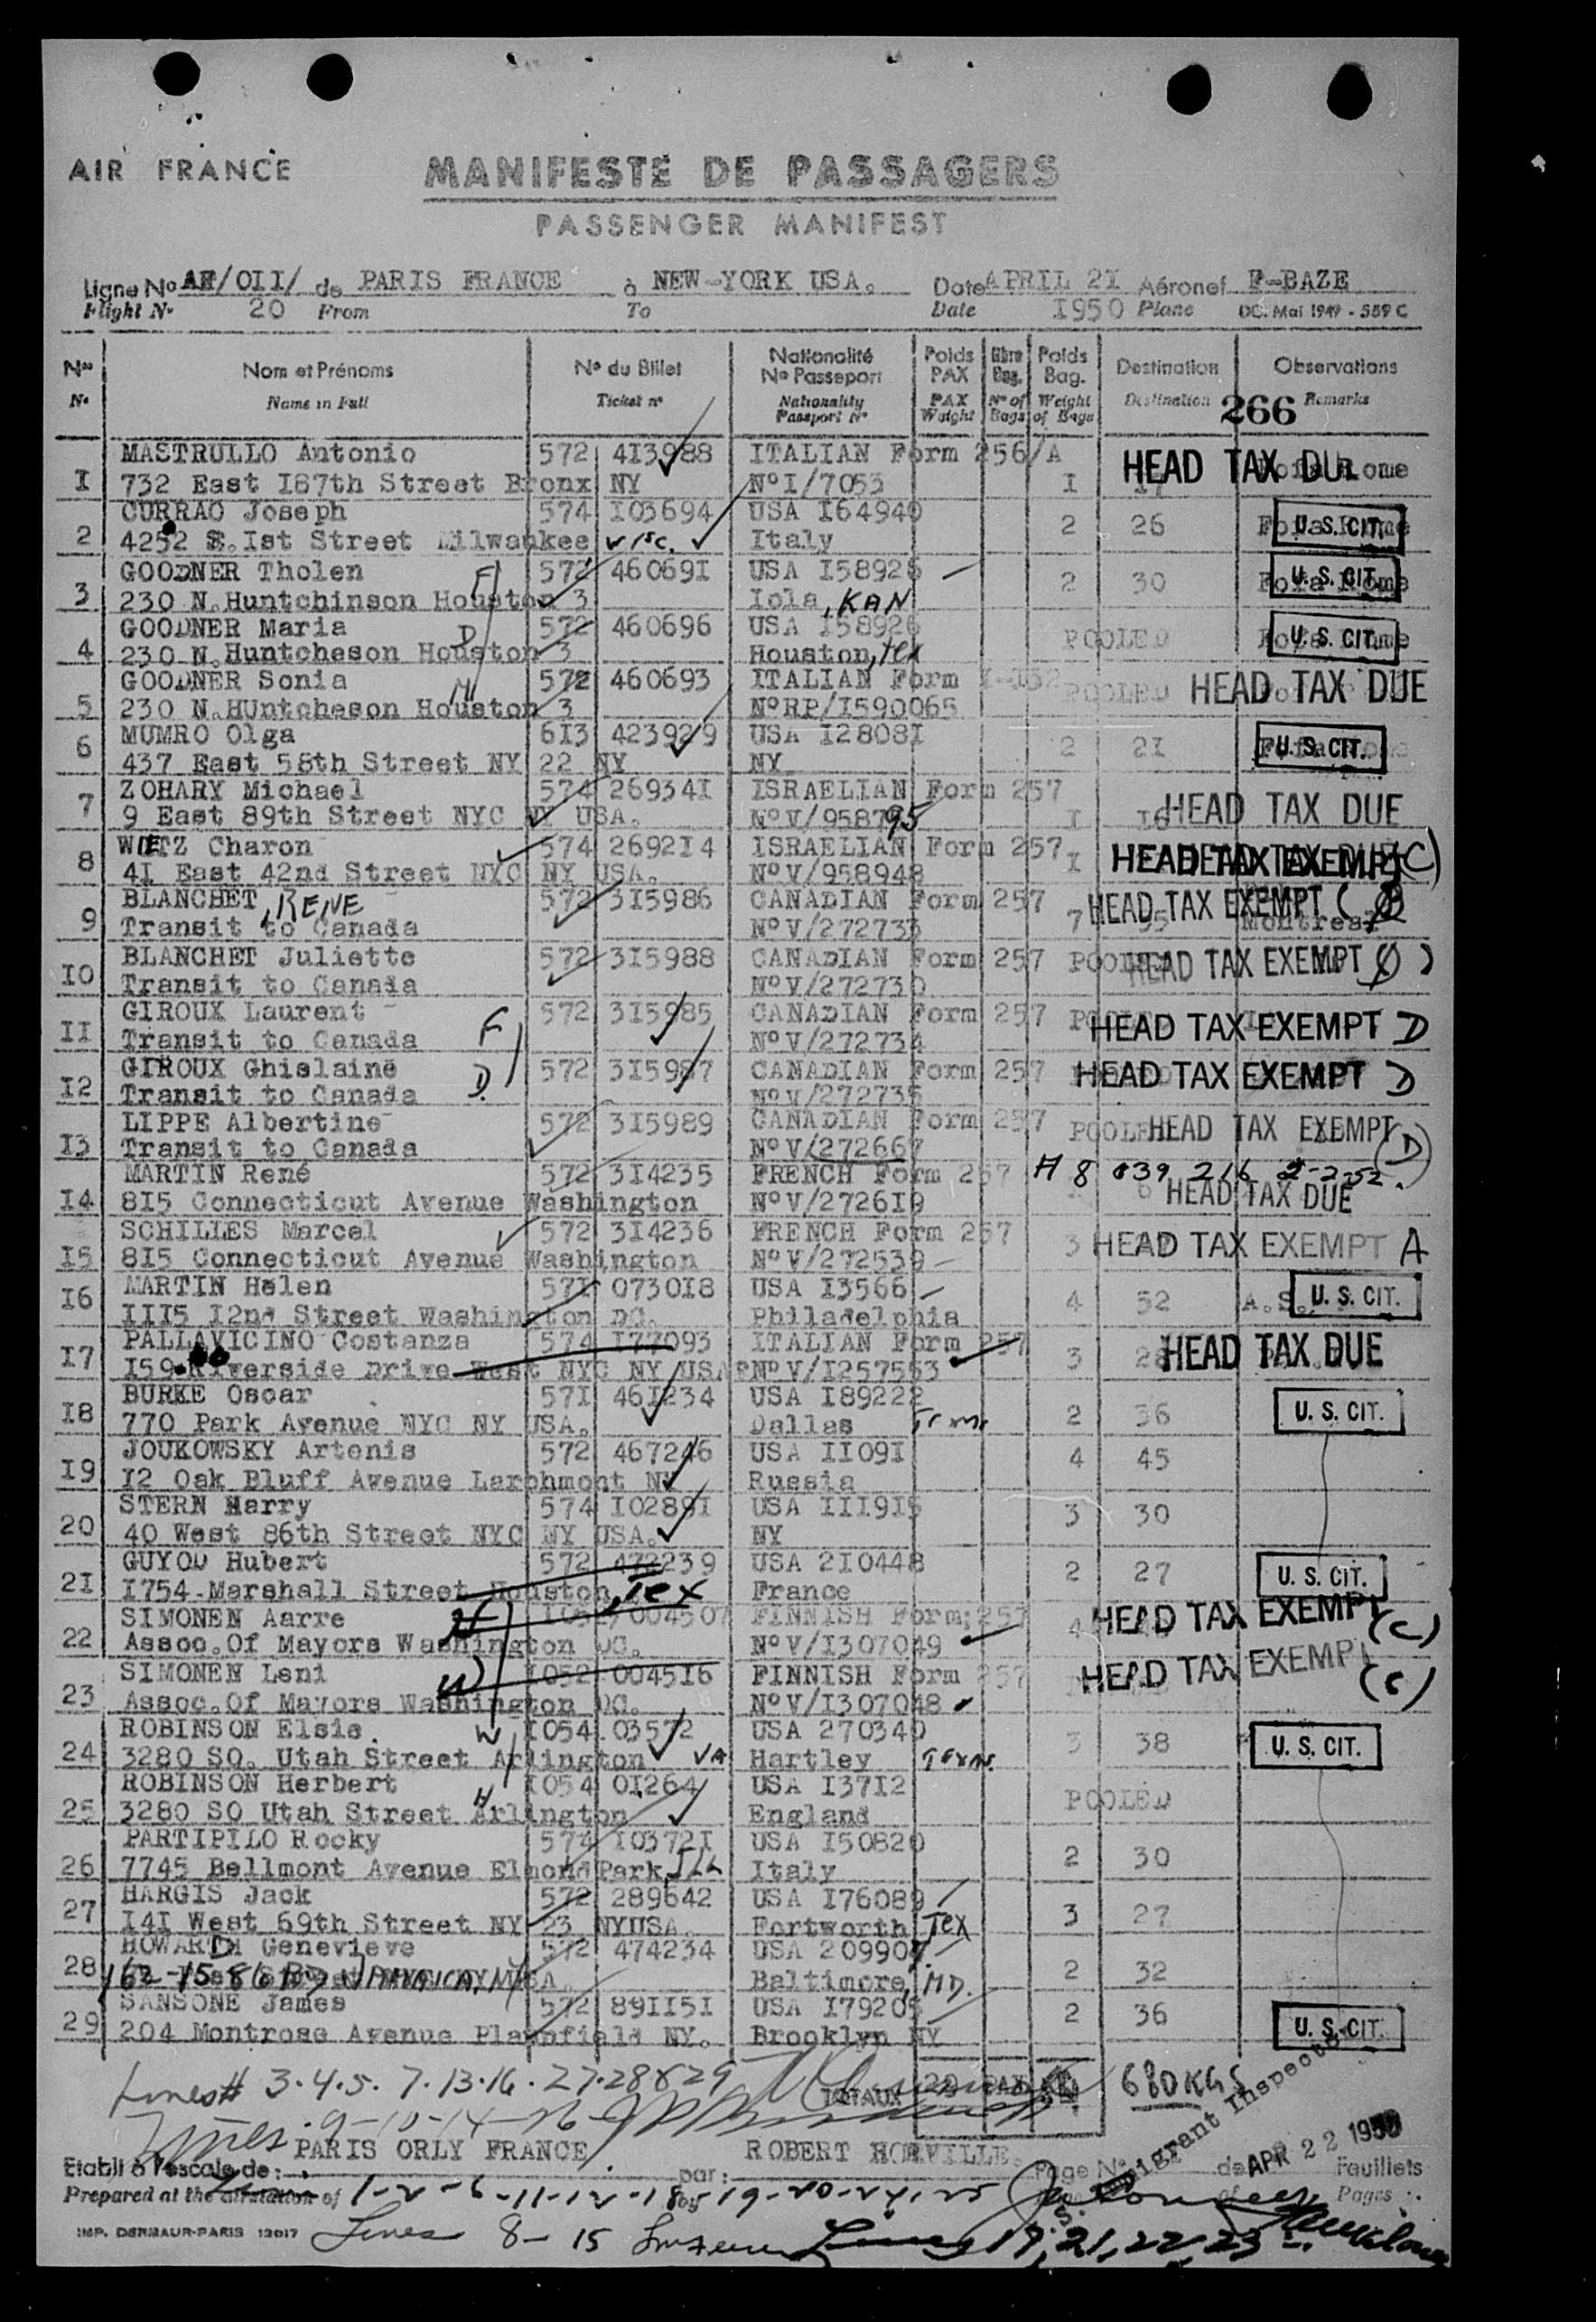 AIR FRANCE
MANIFESTE DE PASSAGERS
PASSENGER MANIFEST
Ligne No AF/OII/ de PARIS FRANCE à NEW-YORK USA. Date APRIL 2I Aéronef F-BAZE
Flight No 20 From To Date I950 Plane DC. Mai 1949 - 559 C
Nos Nom et Prénoms No du Billet Nationalité No Passeport Poids PAX Nbre Bag. Poids Bag. Destination Observations
No Name in Full Ticket no Nationality Passport No PAX Weight No of Bags Weight of Bags Destination 266 Remarks
MASTRULLO Antonio 572 4I3988 ITALIAN Form 256/A HEAD TAX DUE
I 732 East I87th Street Bronx NY No I/7053 I I7 Rome
CURRAO Joseph 574 I03694 USA I64940
2 4252 S. Ist Street Milwaukee Wisc. Italy 2 26 U. S. CIT.
GOODNER Tholen F 572 46069I USA I58925
3 230 N. Huntchinson Houston 3 Iola, KAN 2 30 U. S. CIT.
GOODNER Maria D 572 460696 USA I58926
4 230 N. Huntcheson Houston 3 Houston, Tex POOLED U. S. CIT.
GOODNER Sonia M 572 460693 ITALIAN Form I-I32
5 230 N. HUntcheson Houston 3 No RP/I590065 POOLED HEAD TAX DUE
MUMRO Olga 6I3 423929 USA I2808I
6 437 East 58th Street NY 22 NY NY 2 2I U. S. CIT.
ZOHARY Michael 574 26934I ISRAELIAN Form 257
7 9 East 89th Street NYC NY USA. No V/958795 I I6 HEAD TAX DUE
WITZ Charon 574 2692I4 ISRAELIAN Form 257
8 4I East 42nd Street NYC NY USA. No V/958948 I HEAD TAX EXEMPT (C)
BLANCHET, RENE 572 3I5986 CANADIAN Form 257
9 Transit to Canada No V/272733 7 95 HEAD TAX EXEMPT Montreal
BLANCHET Juliette 572 3I5988 CANADIAN Form 257
IO Transit to Canada No V/272730 POOLED HEAD TAX EXEMPT
GIROUX Laurent F 572 3I5985 CANADIAN Form 257
II Transit to Canada No V/272734 HEAD TAX EXEMPT D
GIROUX Ghislaine D. 572 3I5987 CANADIAN Form 257
I2 Transit to Canada No V/272735 HEAD TAX EXEMPT D
LIPPE Albertine 572 3I5989 CANADIAN Form 257
I3 Transit to Canada No V/272667 POOLED HEAD TAX EXEMPT (D)
MARTIN René 572 3I4235 FRENCH Form 257 H 8 039 216 2-2-52.
I4 8I5 Connecticut Avenue Washington No V/2726I9 HEAD TAX DUE
SCHILLES Marcel 572 3I4236 FRENCH Form 257
I5 8I5 Connecticut Avenue Washington No V/272539 3 HEAD TAX EXEMPT A
MARTIN Helen 57I 0730I8 USA I3566
I6 III5 I2nd Street Washington DC. Philadelphia 4 52 U. S. CIT.
PALLAVICINO Costanza 574 I77093 ITALIAN Form 257
I7 I59 Riverside Drive West NYC NY USA No V/I257553 3 HEAD TAX DUE
BURKE Oscar 57I 46I234 USA I89222
I8 770 Park Avenue NYC NY USA. Dallas Texas 2 36 U. S. CIT.
JOUKOWSKY Artenis 572 467246 USA II09I
I9 I2 Oak Bluff Avenue Larchmont NY Russia 4 45
STERN Harry 574 I0289I USA III9I5
20 40 West 86th Street NYC NY USA. NY 3 30
GUYOD Hubert 572 472239 USA 2I0448
2I I754-Marshall Street Houston, Tex France 2 27 U. S. CIT.
SIMONEN Aarre H I052/004507 FINNISH Form; 257
22 Assoc. Of Mayors Washington DC. No V/I307049 4 HEAD TAX EXEMPT (C)
SIMONEN Leni W I052 0045I6 FINNISH Form 257
23 Assoc. Of Mayors Washington DC. No V/I307048 HEAD TAX EXEMPT (C)
ROBINSON Elsie. W I054 03572 USA 270340
24 3280 SO. Utah Street Arlington VA Hartley Texas 3 38 U. S. CIT.
ROBINSON Herbert H I054 0I264 USA I37I2
25 3280 SO Utah Street Arlington England POOLED
PARTIPILO Rocky 574 I0372I USA I50820
26 7745 Bellmont Avenue Elmond Park, ILL Italy 2 30
HARGIS Jack 572 289642 USA I76089
27 I4I West 69th Street NY 23 NYUSA. Fortworth Tex 3 27
HOWARTH Genevieve 572 474234 USA 209907
28 162-15 86 RD JAMAICA, NY Baltimore, MD. 2 32
SANSONE James 572 89II5I USA I79205
29 204 Montrose Avenue Plainfield NY. Brooklyn NY 2 36 U. S. CIT.
Lines # 3. 4. 5. 7. 13. 16. 27. 28 & 29 TOTAUX 29 PAX 680 KGS
Lines. 9-10-14-26 Immigrant Inspector
PARIS ORLY FRANCE ROBERT HORVILLE. APR 22 1950
Etabli à l'escale de: par: Page No de Feuillets
Prepared at the of by of Pages
1-2-6-11-12-18-19-20-24-25
IMP. DERMAUR-PARIS 13017 Lines 8-15 Lines 17, 21, 22, 23